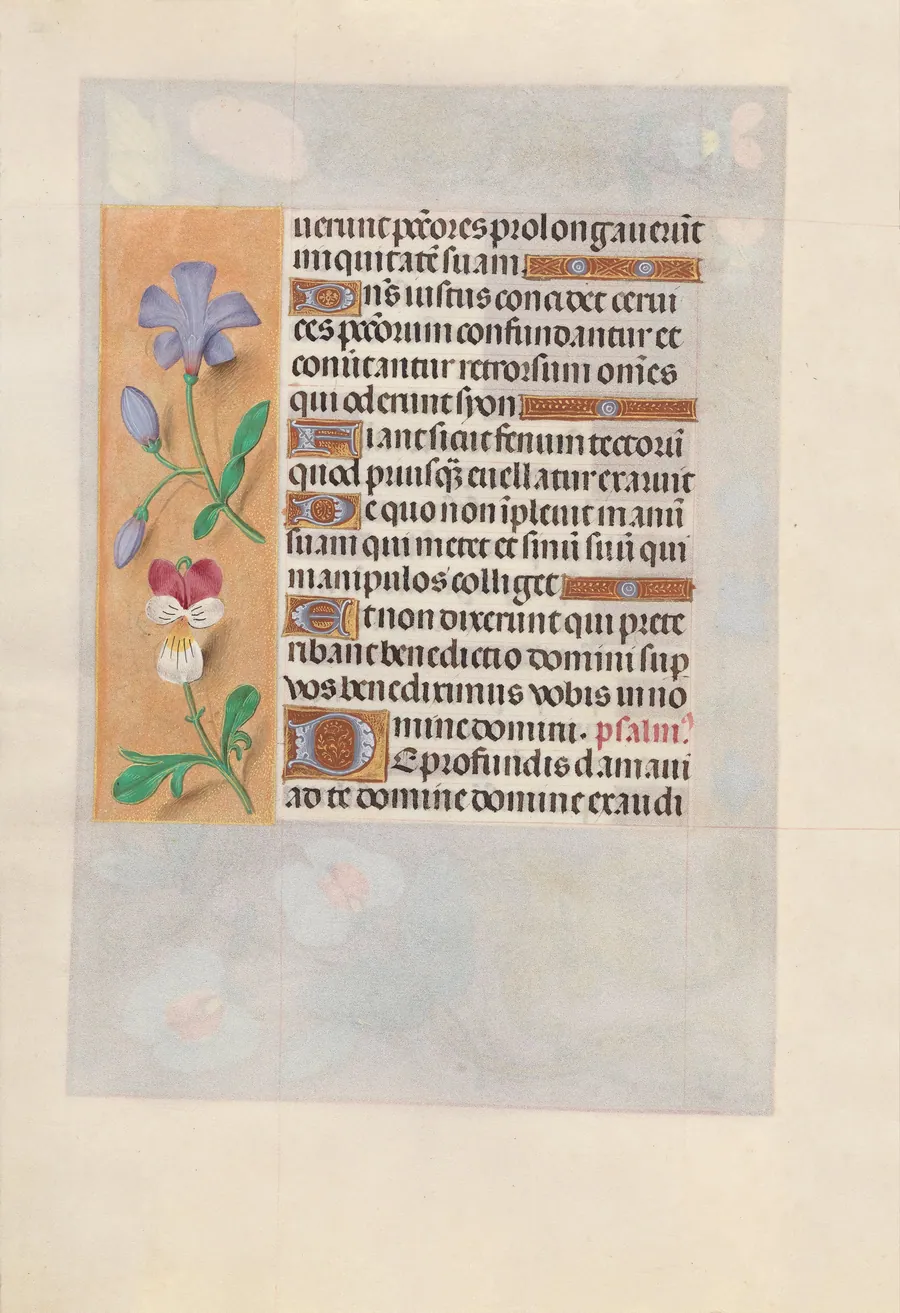 uerunt pctōres prolongauerūt
iniquitatē suam.
Dn̄s iustus concidet cerui
ces pctōrum confundantur et
conūtantur retrorsum om̄es
qui oderunt syon.
Fiant sicut fenum tectorū
quod priusq̄ euellatur exaruit
De quo non īpleuit manū
suam qui metet et sinū suū qui
manipulos colliget
Et non dixerunt qui prete
ribant benedictio domini sup̱
vos benediximus vobis in no
mine domini. psalmꝰ
De profundis clamaui
ad te domine domine exaudi